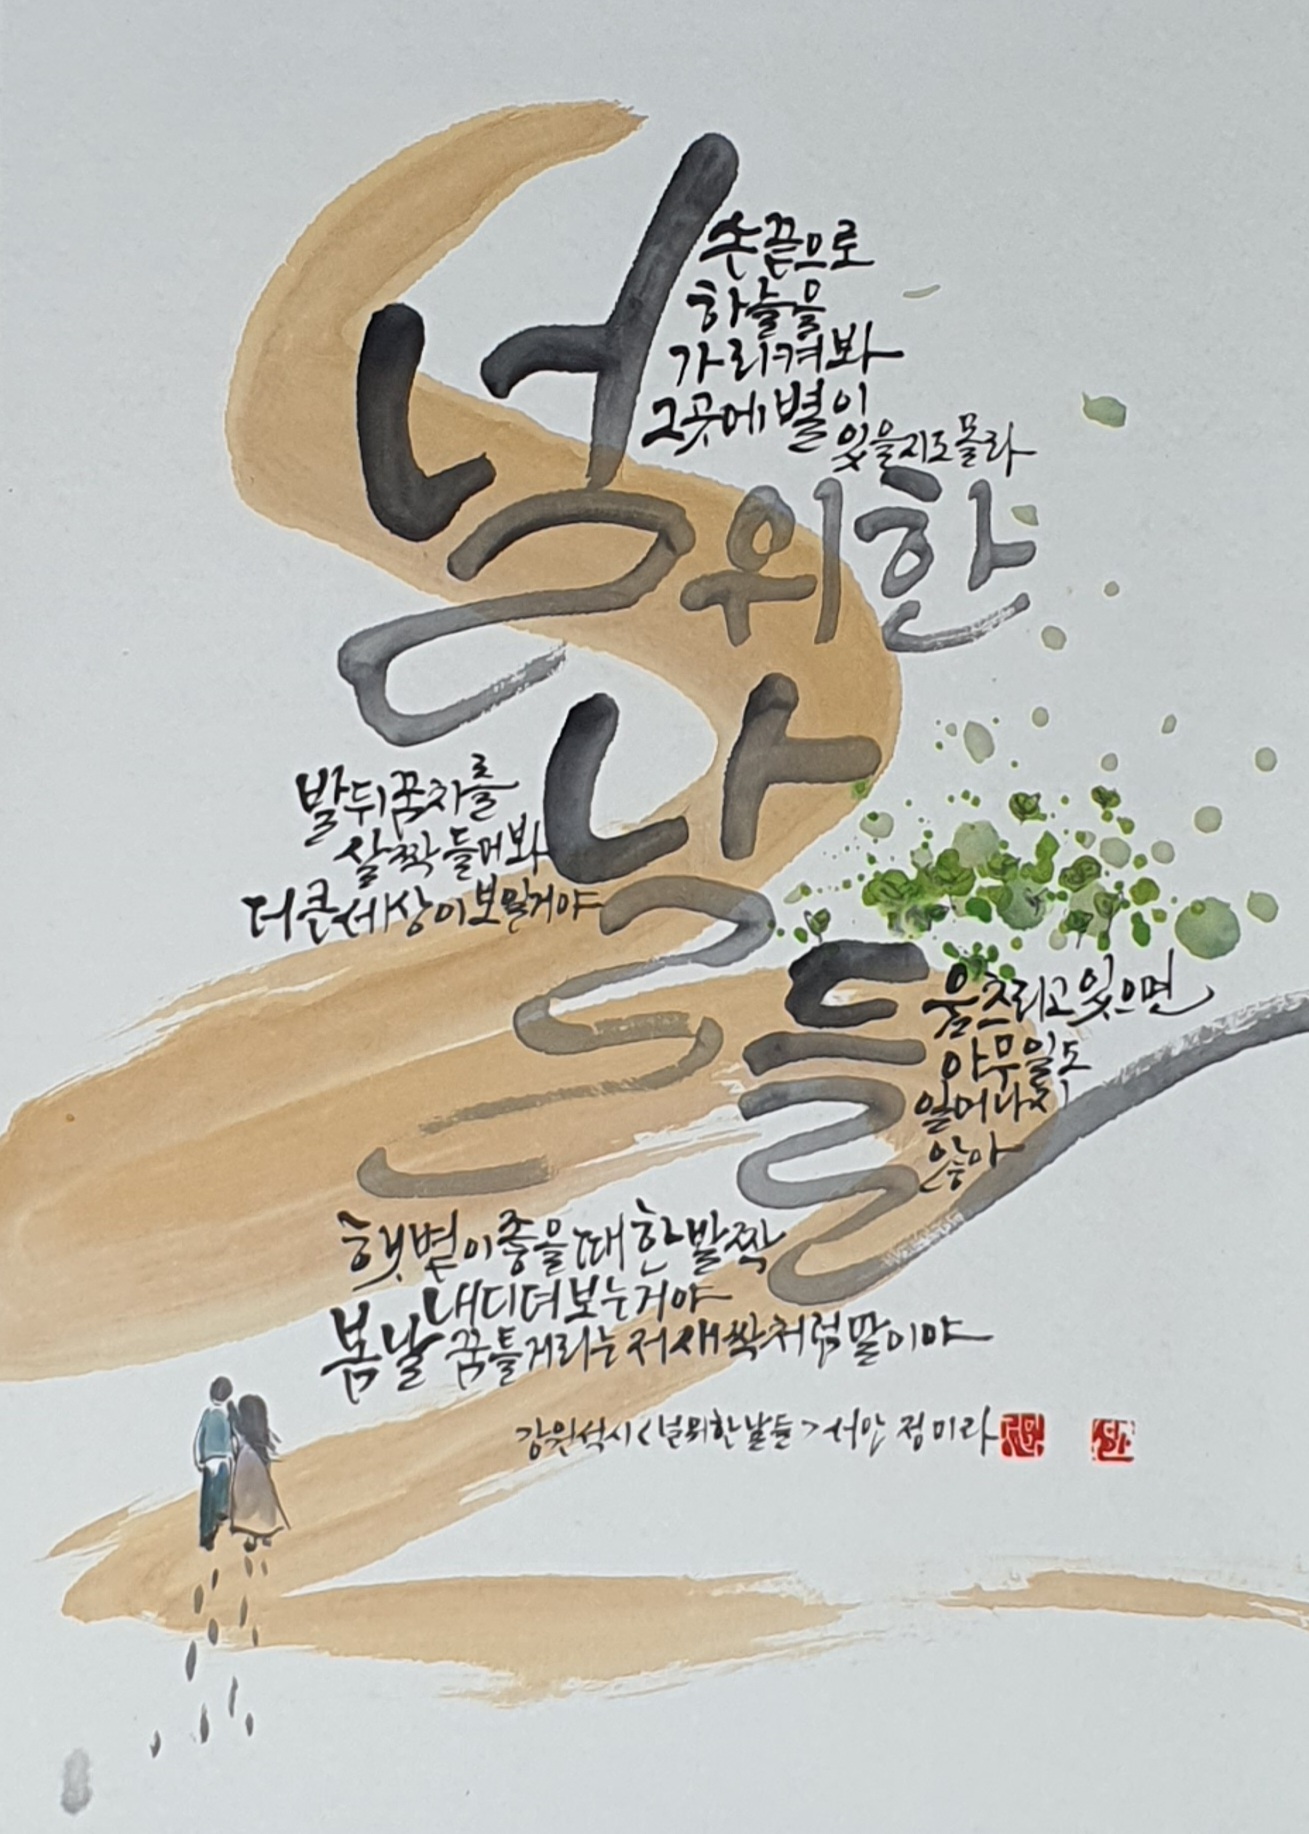 손끝으로
하늘을
가리켜봐
그곳에 별이
있을지도 몰라
널 위한
날
들
발뒤꿈치를
살짝 들어봐
더 큰 세상이 보일거야
움츠리고 있으면
아무 일도
일어나지
않아
햇볕이 좋을 때 한 발짝
내디뎌 보는 거야
봄날 꿈틀거리는 저 새싹처럼 말이야
강원석 시 <널 위한 날들> 서안 정미라